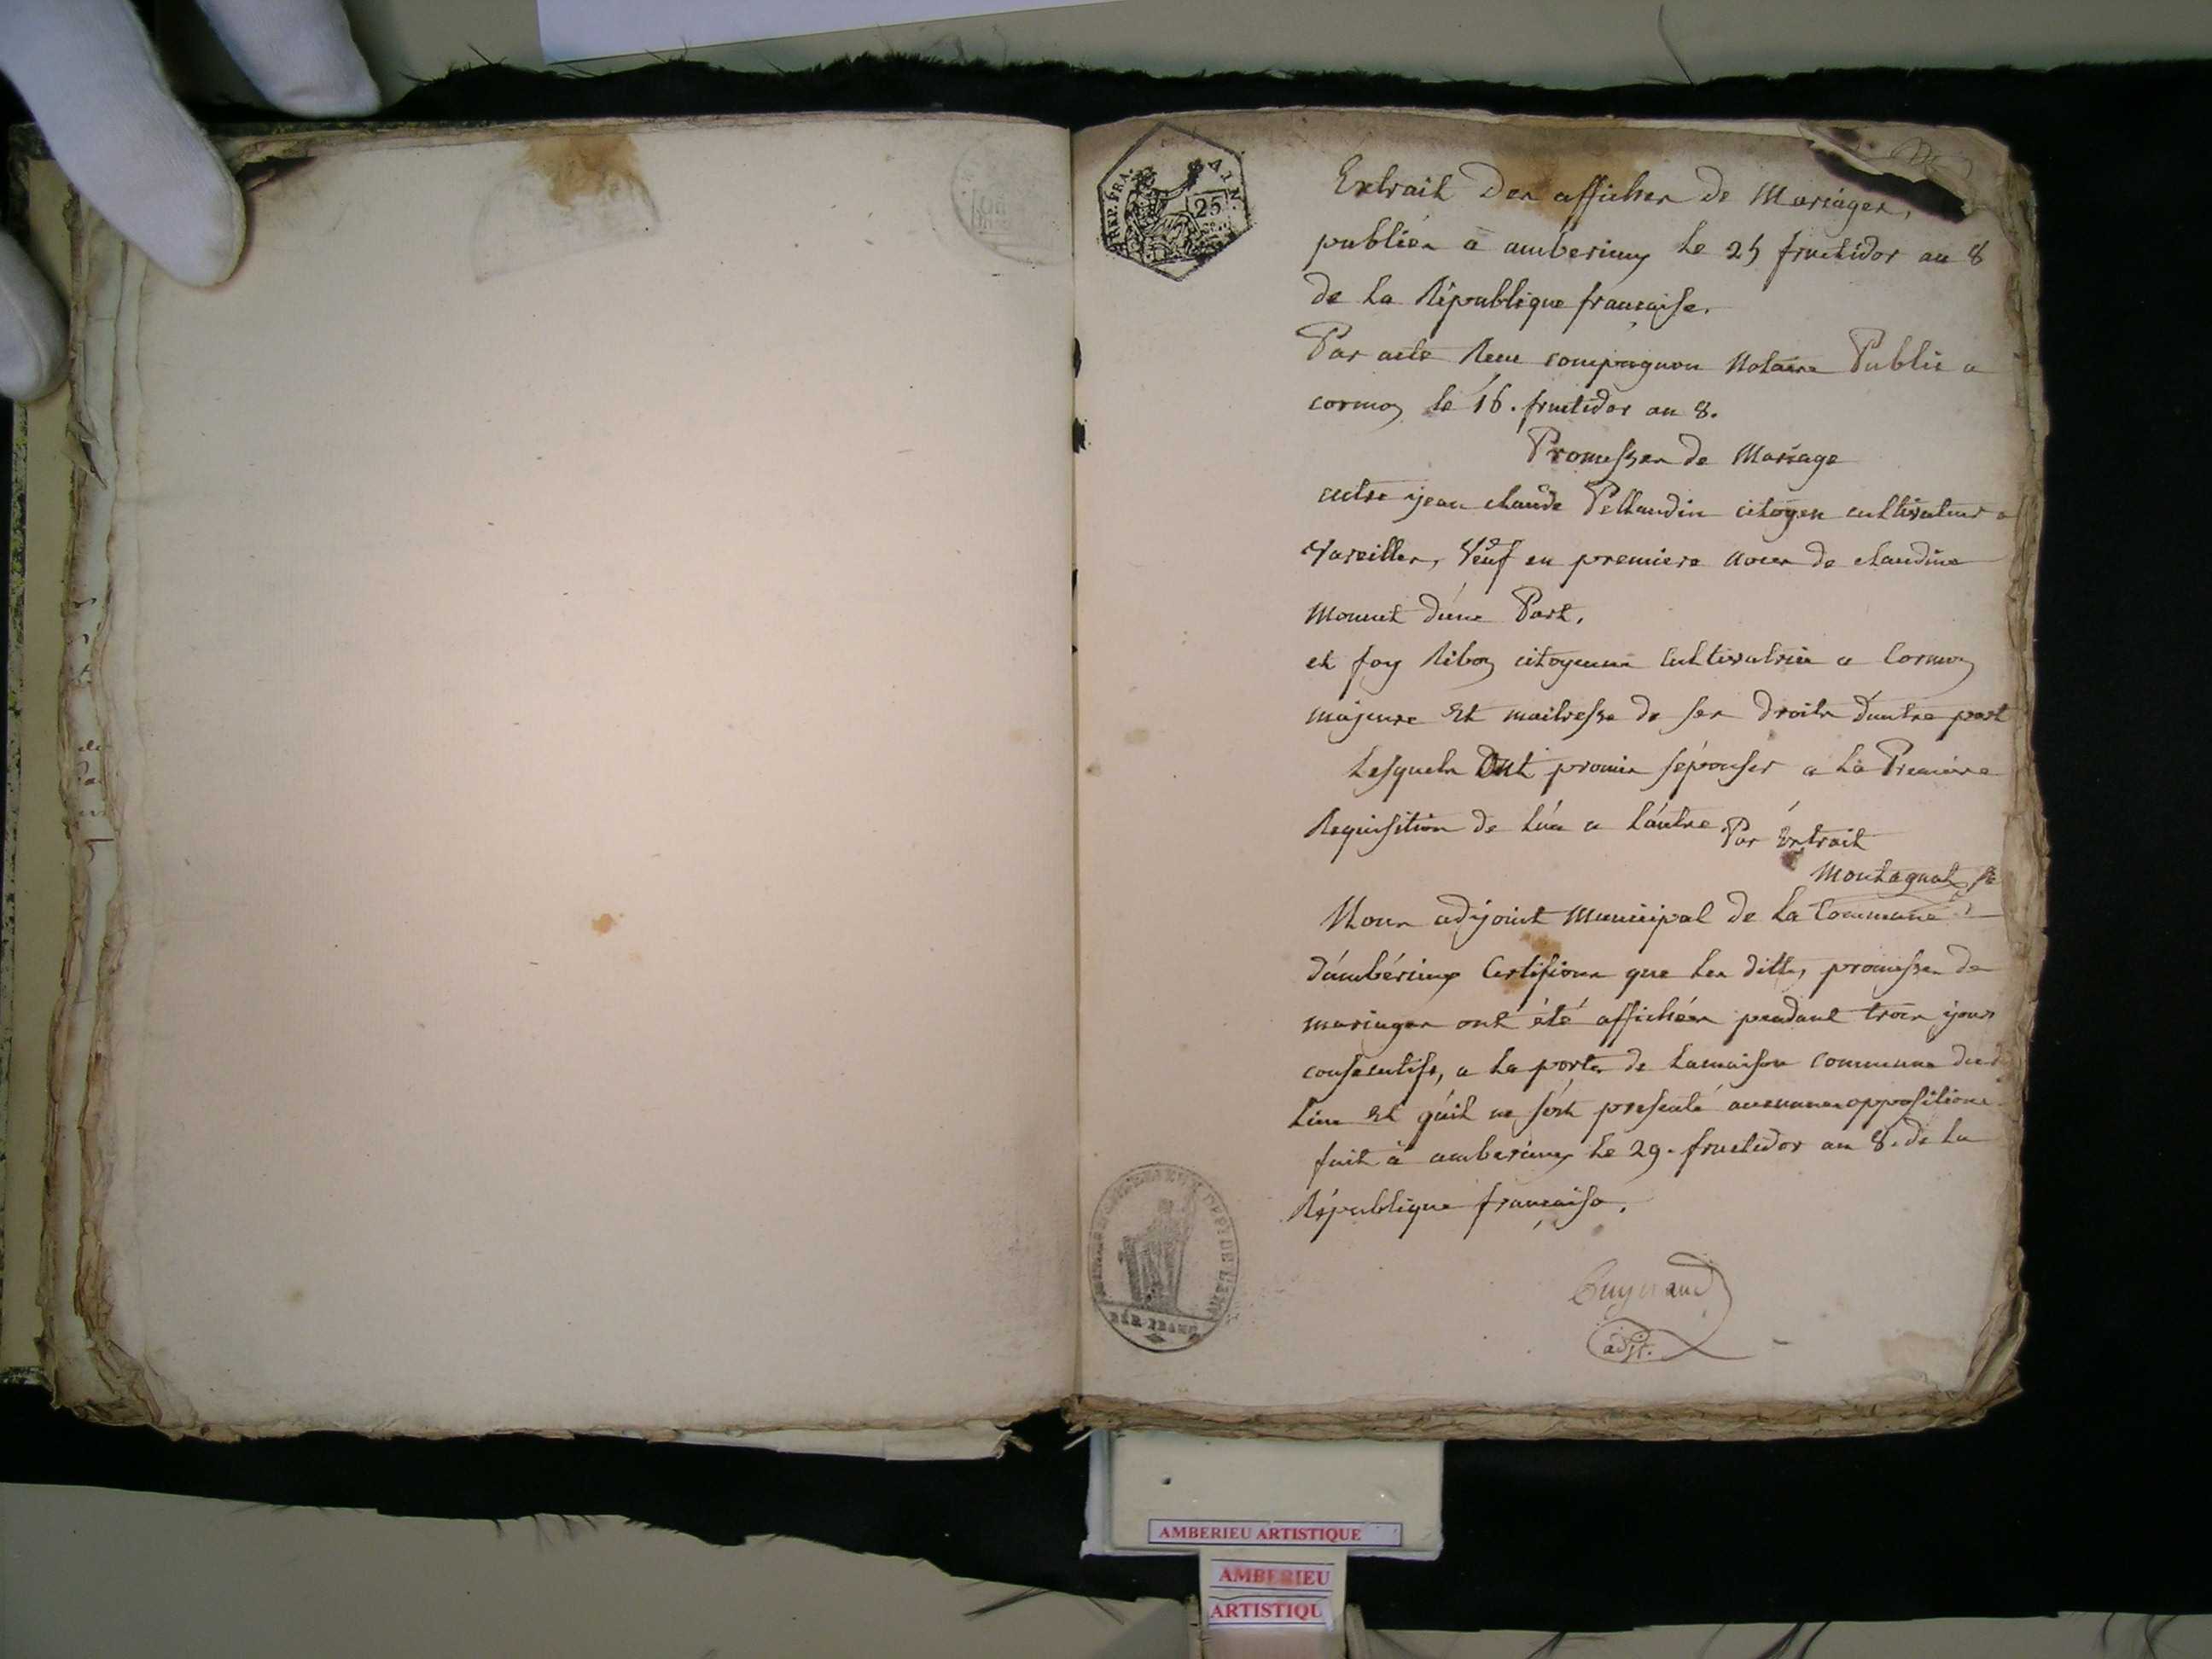 REP. FRA.
AIN.
25
Extrait Des affiches de Mariages,
publiés a amberieux le 25 fructidor an 8
de la République française.
Par acte Reçu compagnon Notaire Public a
cormoz le 16. fructidor an 8.
Promesses de Mariage
entre jean claude Pellaudin citoyen cultivateur a
Vareilles, Veuf en premiere noces de claudine
Monnet d'une Part,
et foy Riboz citoyenne Cultivatrice a Cormoz
majeure Et maitresse de ses droits d'autre part
Lesquels Ont promis s'épouser a la Premiere
Requisition de l'un a l'autre Par Extrait
Montagnat
Nous adjoint Municipal de la Commune
d'ambérieux Certifions que les dittes promesses de
mariages ont été affichées pendant trois jours
consecutifs, a la porte de lamaison commune dud
lieu Et qu'il ne s'est presenté aucunnes oppositions
fait à amberieux le 29. fructidor an 8. de la
République française.
adjt.
DEPT DE L'AIN
RÉP. FRANC
AMBERIEU ARTISTIQUE
AMBERIEU
ARTISTIQU